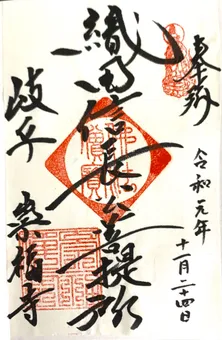 奉拝
令和元年
十一月二十四日
織田信長公菩提所
岐阜 崇福寺